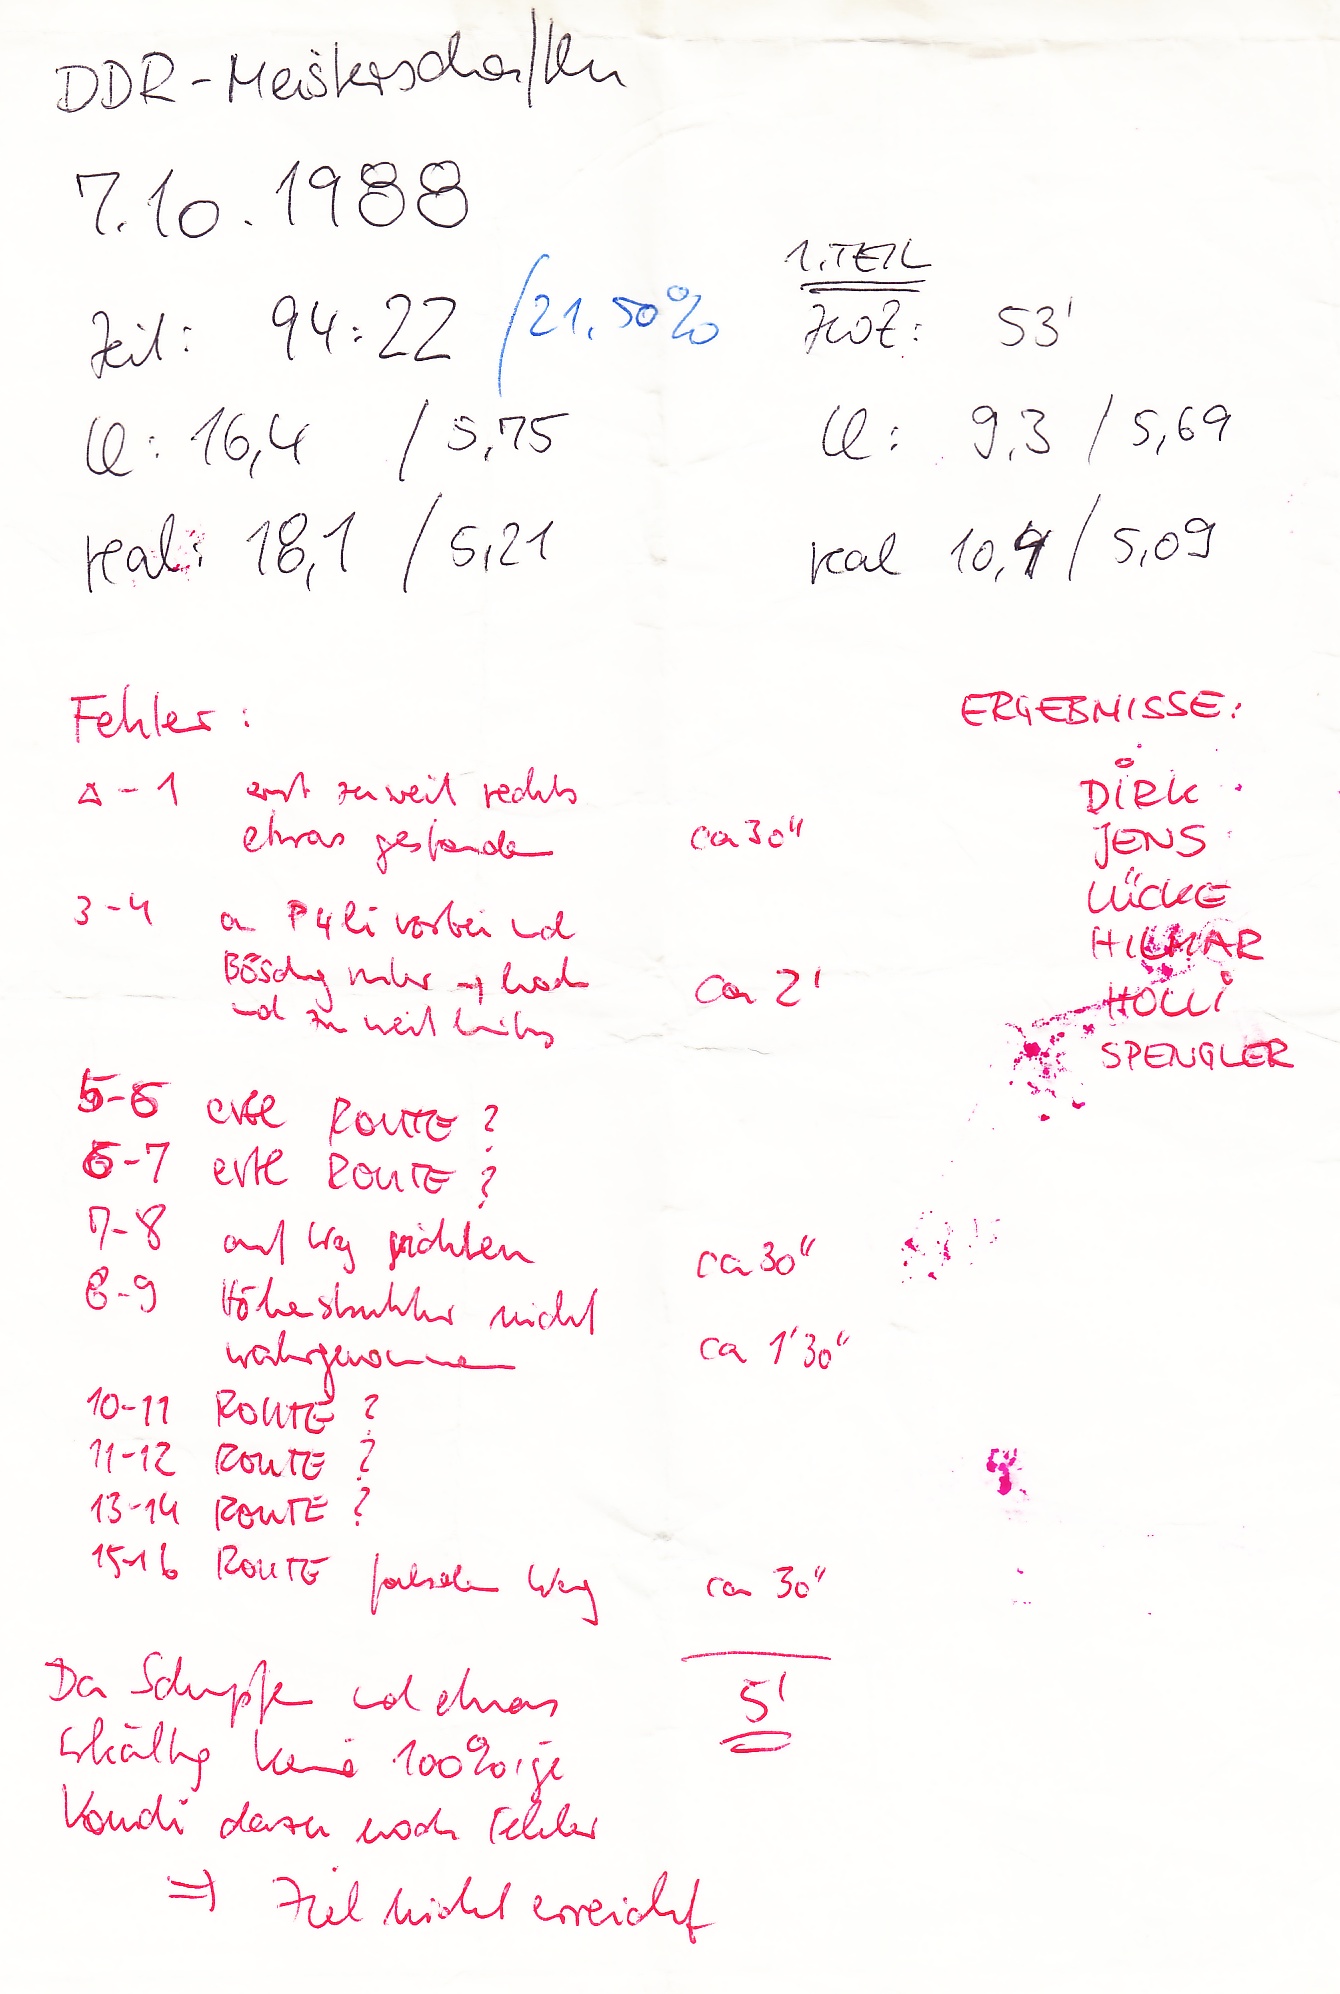 DDR-Meisterschaften
7.10.1988
Zeit: 94:22 /21,50%
16,4 / 5,75
real: 18,1 / 5,21
1. TEIL
53'
9,3 / 5,69
real 10,4 / 5,09
Fehler:
△-1 erst zu weit rechts
etwas gestanden ca 30"
3-4 an P4li vorbei und
Böschung runter → hoch
und zu weit links ca 2'
5-6 evtl ROUTE?
6-7 evtl ROUTE?
7-8 auf Weg ca 30"
8-9 Höhenstruktur nicht
wahrgenommen ca 1'30"
10-11 ROUTE?
11-12 ROUTE?
13-14 ROUTE?
15-16 ROUTE falschen Weg ca 30"
5'
ERGEBNISSE:
DIRK
JENS
LÜCKE
HILMAR
HOLLI
SPENGLER
Da Schnupfen und etwas
Erkältg keine 100%ige
Kondi dazu noch Fehler
⇒ Ziel nicht erreicht